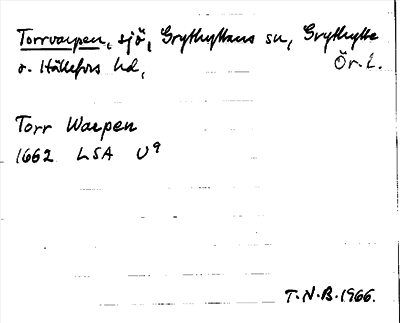 Torrvarpen, sjö, Grythyttans sn, Grythytte
o. Hällefors hd, Ör. L.
Torr Warpen
1662 LSA U9
T.N.B. 1966.